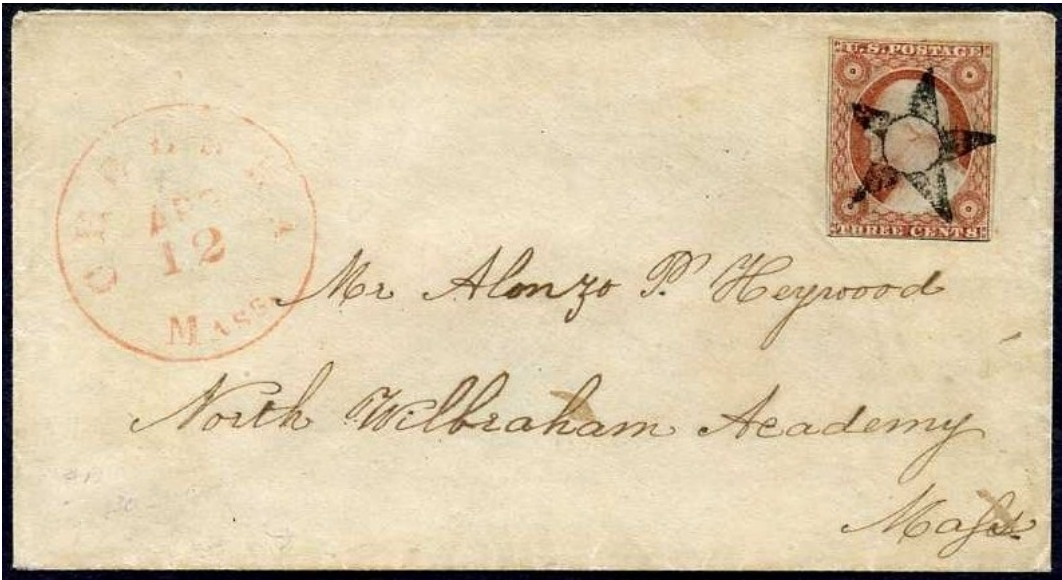 U.S. POSTAGE
THREE CENTS
CHELSEA
APR
12
MASS.
Mr Alonzo P. Heywood
North Wilbraham Academy
Mass.